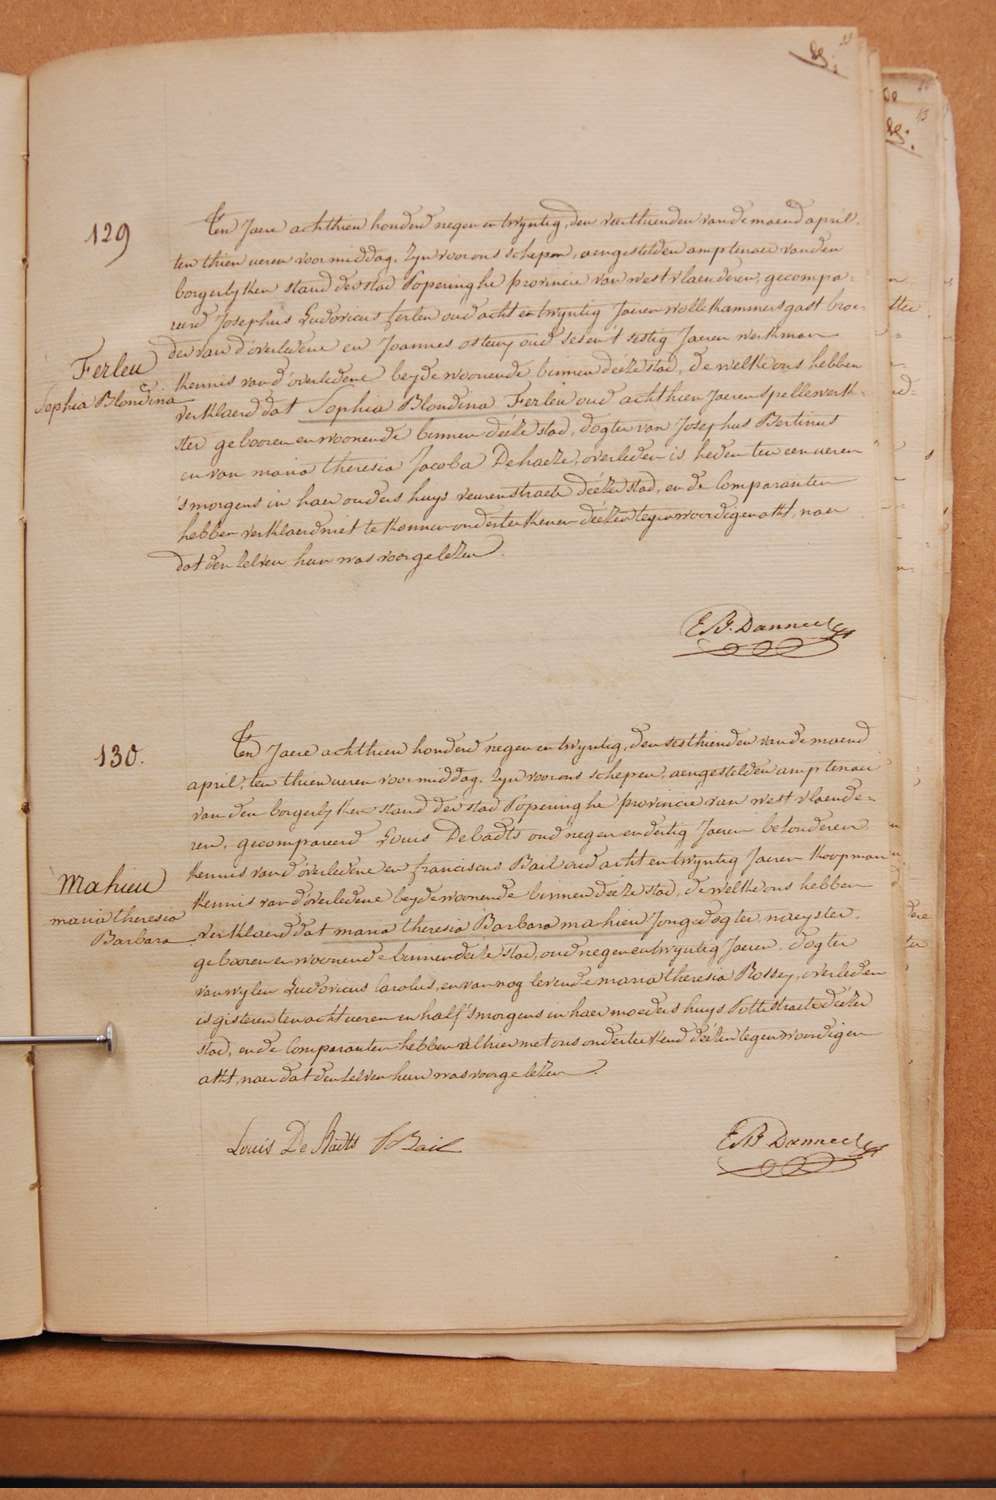 129
Ferleu
Sophia Blondina
Ten Jaere achthien honderd negen en twyntig, den veerthienden van de maend april
ten thien ueren voormiddag. Zyn voor ons schepen, aengestelden amptenaer van den
borgerlyken stand der stad Poperinghe provincie van westvlaenderen, gecompa-
reerd Josephus Ludovicus ferleu oud acht en twyntig Jaeren wollekammersgast broe-
der van d'overledene en Joannes osteux oud sesen t sestig Jaeren werkman
kennis van d'overledene beyde woonende binnen deéze stad, de welke ons hebben
verklaerd dat Sophia Blondina Ferleu oud achthien Jaeren spellewerk-
ster gebooren en woonende binnen deéze stad, dogter van Josephus Bertinus
en van maria theresia Jacoba Dehaeze, overleden is heden ten een ueren
's morgens in haer ouders huys veurenstraete deéze stad, en de Comparanten
hebben verklaerd niet te konnen onderteekenen deézen tegenwoordigen akt, naer
dat den zelven hun was voorgelezen.
E B. Danneel
130.
Mahieu
maria theresia
Barbara
Ten Jaere achthien honderd negen en twyntig, den sesthienden van de maend
april, ten thien ueren voormiddag. Zyn voor ons schepen, aengestelden amptenaer
van den borgerlyken stand der stad Poperinghe provincie van westvlaende-
ren, gecompareerd Louis Debadts oud negen en dertig Jaeren besonderen
kennis van d'overledene en franciscus Bail oud acht en twyntig Jaeren koopman
kennis van d'overledene beyde woonende binnen deéze stad, de welke ons hebben
verklaerd dat maria theresia Barbara mahieu Jonge dogter, naeyster,
gebooren en woonende binnen deéze stad, oud negen en twyntig Jaeren, dogter
van wylen Ludovicus Carolus, en van nog levende maria theresia Rossey, overleden
is gisteren ten acht ueren en half 's morgens in haer moeders huys Pottestraete deézer
stad, en de Comparanten hebben alhier met ons onderteekend deézen tegenwoordigen
akt, naer dat den zelven hun was voorgelezen.
Louis De Badts F Bail
E B Danneel